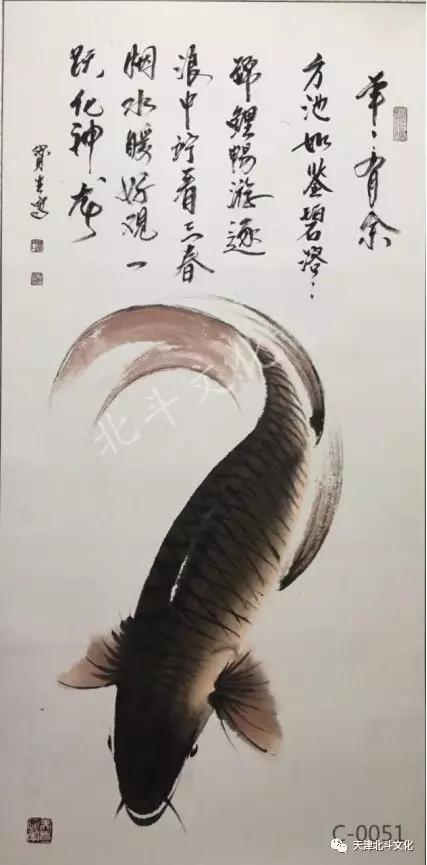 年〻有余
方池如鉴碧溶〻
锦鲤暢游逐
浪中竚看三春
烟水暖好观一
跃化神龙
北斗文化
C-0051
天津北斗文化